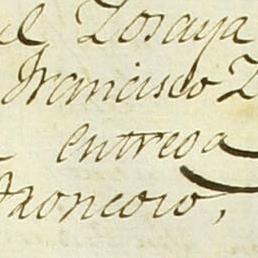 el Zosaya
Francisco Z
entrega
Troncoso,